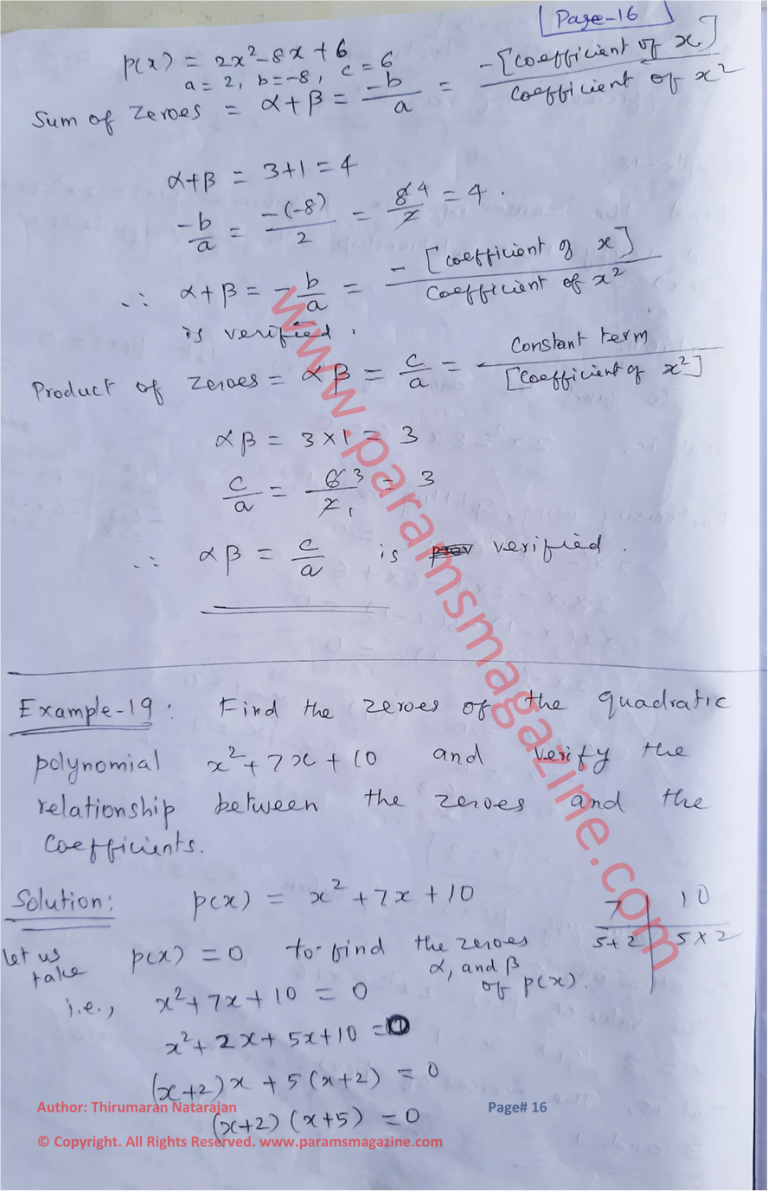 Page-16
p(x) = 2x² - 8x + 6
a = 2, b = -8, c = 6
Sum of zeroes = α+β = -b/a = -[coefficient of x]/coefficient of x²
α+β = 3+1 = 4
-b/a = -(-8)/2 = 8/2 4 = 4.
∴ α+β = -b/a = -[coefficient of x]/coefficient of x²
is verified.
Product of zeroes = αβ = c/a = constant term/[coefficient of x²]
αβ = 3×1 = 3
c/a = 6 3/2 1 = 3
∴ αβ = c/a is verified.
Example-19: Find the zeroes of the quadratic
polynomial x²+7x+10 and verify the
relationship between the zeroes and the
coefficients.
Solution: p(x) = x²+7x+10
7 | 10
5+2 | 5×2
Let us take p(x) = 0 to find the zeroes
α, and β
of p(x).
i.e., x²+7x+10 = 0
x²+2x+5x+10 = 0
(x+2)x + 5(x+2) = 0
(x+2)(x+5) = 0
www.paramsmagazine.com
Author: Thirumaran Natarajan Page# 16
© Copyright. All Rights Reserved. www.paramsmagazine.com